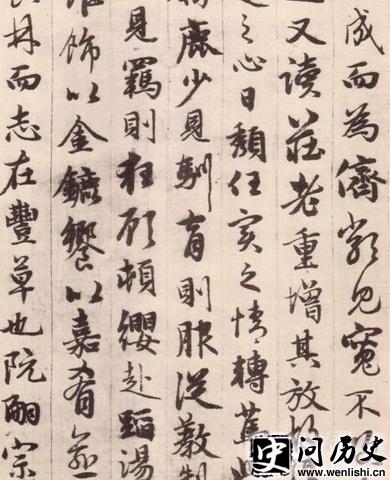 成而為儕類見寬不
又讀莊老重增其放故
之心日頹任實之情轉篤此
禽鹿少見馴育則服從教制
見羈則狂顧頓纓赴蹈湯
飾以金鑣饗以嘉肴逾
林而志在豐草也阮嗣宗
史问历史
www.wenlishi.cn